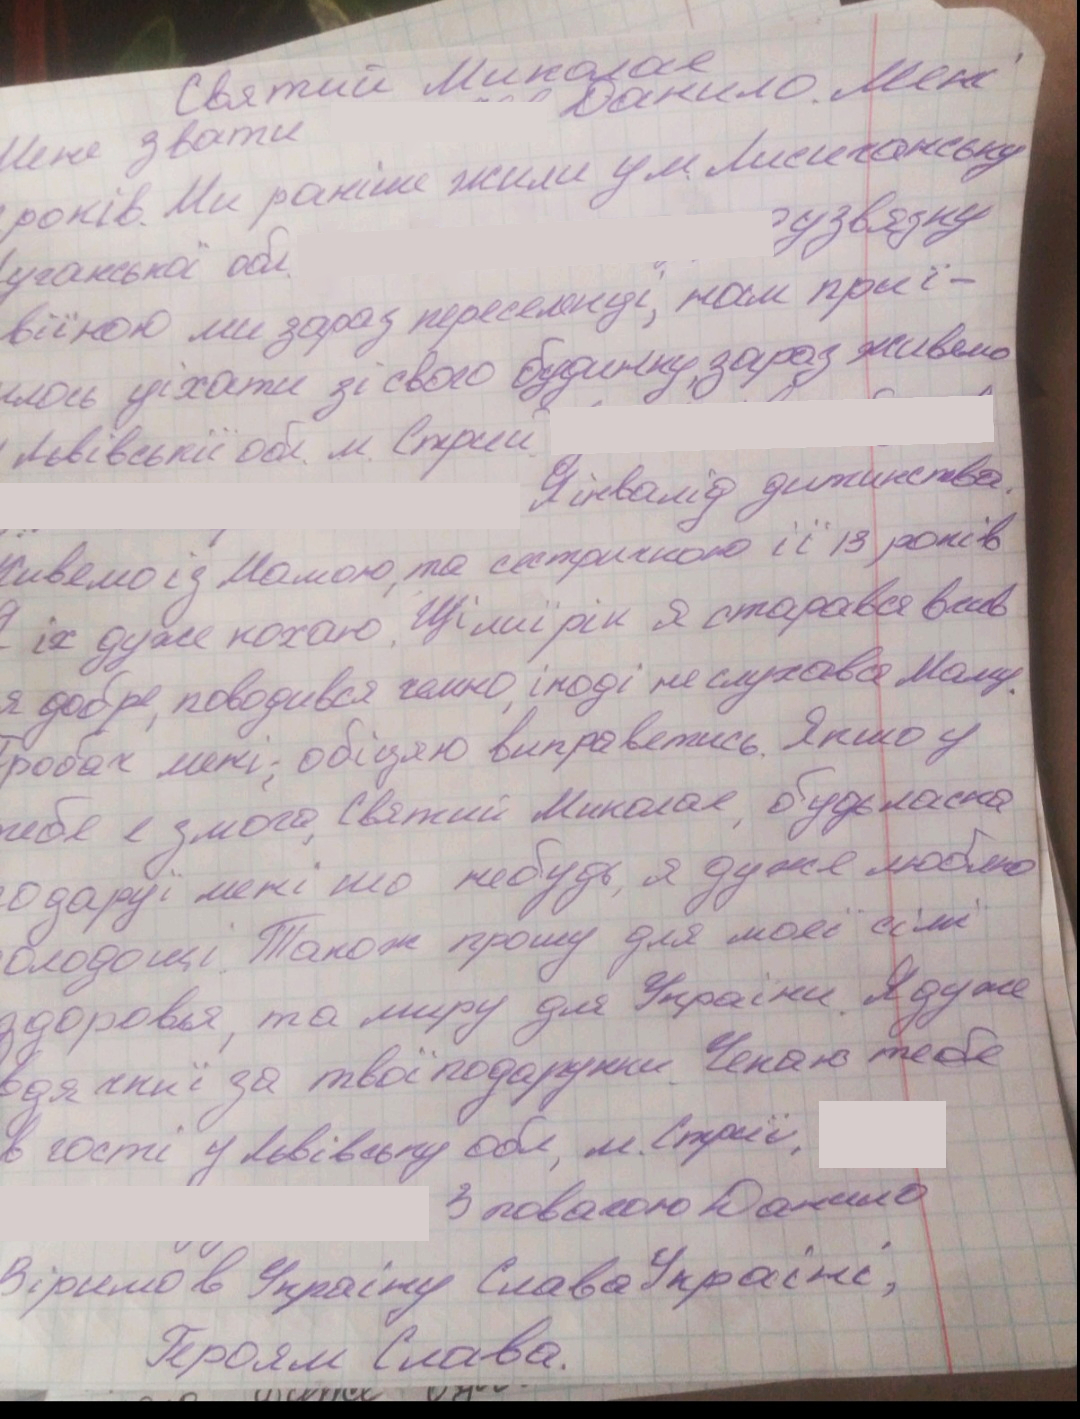 Святий Миколає
Мене звати Данило. Мені
років. Ми раніше жили у м. Лисичанську
Луганської обл. узвязку
війною ми зараз переселенці, нам приї-
лось уїхати зі свого будинку, зараз живемо
Львівській обл. м. Стрий
Я інвалід дитинства.
Живемо із Мамою, та сестричкою її 13 років
Я їх дуже кохаю. Цілий рік я старався вчив
я добре, поводився чемно, іноді не слухався Маму.
Пробач мені, обіцяю виправетись. Якшо у
тебе є змога, Святий Миколає, будьласка
подаруй мені шо небудь, я дуже люблю
солодощі. Також прошу для моєї сімї
здоровья, та миру для України. Я дуже
вдячний за твої подарунки. Чекаю тебе
в гості у Львівську обл, м. Стрий,
З повагою Данило
Віримо в Україну Слава Україні,
Героям Слава.